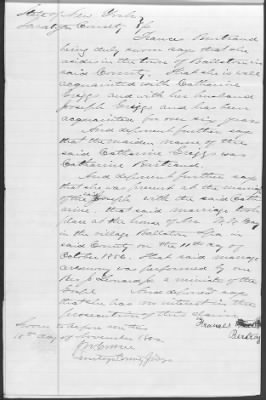 State of New York
Saratoga County } ss
France Bertrand
being duly sworn says that she
resides in the town of Ballston in
said County. That she is well
acquainted with Catharine
Griggs and with her husband
Joseph Griggs and has been
acquainted for over six years
And deponent further says
that the maiden name of the
said Catharine Griggs was
Catharine Bertrand.
And deponent further says
that she was present at the marriage
of the Joseph with the said Catha
rine. that said marriage took
place at the house of
in the village Ballston Spa in
said County on the 11th day of
October 1856. that said marriage
ceremony was performed by one
Rev. a minister of the
Gospel And deponent says
that she has no interest in the
prosecution of this claim
Sworn to before me this
18th day of November
County Judge